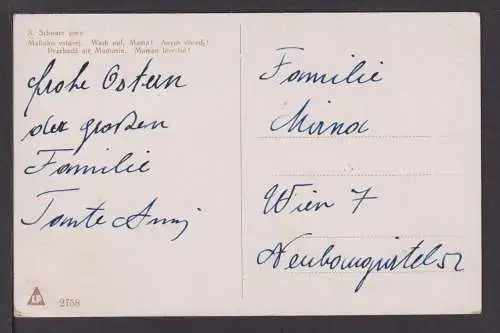 S. Schwarz pinx
Maličká vstávej. Wach auf, Mama! Anyus ébredj!
Przebudź się Mamusiu. Maman lève-toi!
frohe Ostern
der großen
Familie
Tante Anny
LP
2758
Familie
Mirna
Wien 7
Neubaugürtel 52